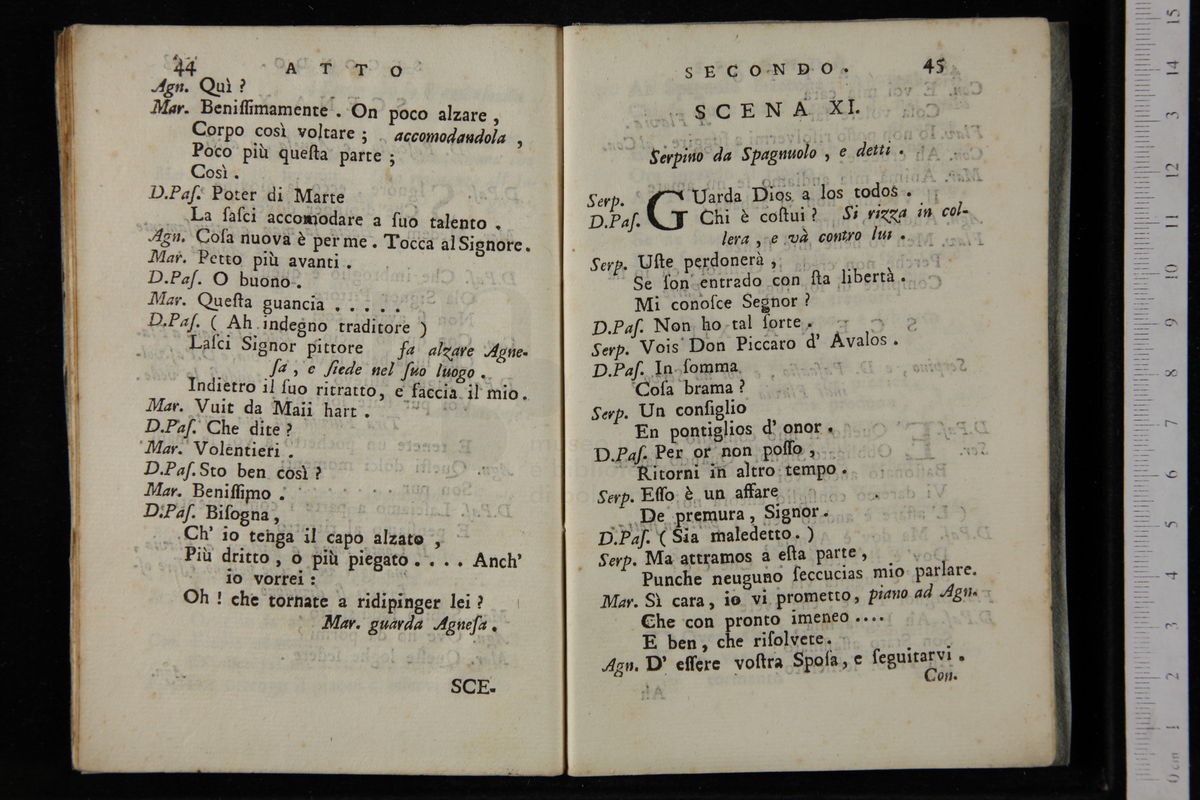 44 ATTO
Agn. Quì ?
Mar. Beniſſimamente . On poco alzare ,
Corpo così voltare ; accomodandola ,
Poco più queſta parte ;
Così .
D.Paſ. Poter di Marte
La laſci accomodare a ſuo talento .
Agn. Coſa nuova è per me . Tocca al Signore .
Mar. Petto più avanti .
D.Paſ. O buono .
Mar. Queſta guancia . . . . .
D.Paſ. ( Ah indegno traditore )
Laſci Signor pittore fa alzare Agne-
ſa , e ſiede nel ſuo luogo .
Indietro il ſuo ritratto, e faccia il mio.
Mar. Vuit da Maii hart .
D.Paſ. Che dite ?
Mar. Volentieri .
D.Paſ. Sto ben così ?
Mar. Beniſſimo .
D.Paſ. Biſogna,
Ch' io tenga il capo alzato ,
Più dritto , o più piegato . . . . Anch'
io vorrei :
Oh ! che tornate a ridipinger lei ?
Mar. guarda Agneſa .
SCE-
SECONDO. 45
SCENA XI.
Serpino da Spagnuolo , e detti .
Serp. GUarda Dios a los todos .
D.Paſ. Chi è coſtui ? Si rizza in col-
lera , e và contro lui .
Serp. Uſte perdonerà ,
Se ſon entrado con ſta libertà .
Mi conoſce Segnor ?
D.Paſ. Non ho tal ſorte .
Serp. Vois Don Piccaro d' Avalos .
D.Paſ. In ſomma
Coſa brama ?
Serp. Un conſiglio
En pontiglios d' onor .
D.Paſ. Per or non poſſo ,
Ritorni in altro tempo .
Serp. Eſſo è un affare
De premura , Signor .
D.Paſ. ( Sia maledetto . )
Serp. Ma attramos a eſta parte ,
Punche neuguno ſeccucias mio parlare.
Mar. Sì cara, io vi prometto, piano ad Agn.
Che con pronto imeneo ....
E ben, che riſolvete.
Agn. D' eſſere voſtra Spoſa, e ſeguitarvi .
Con.